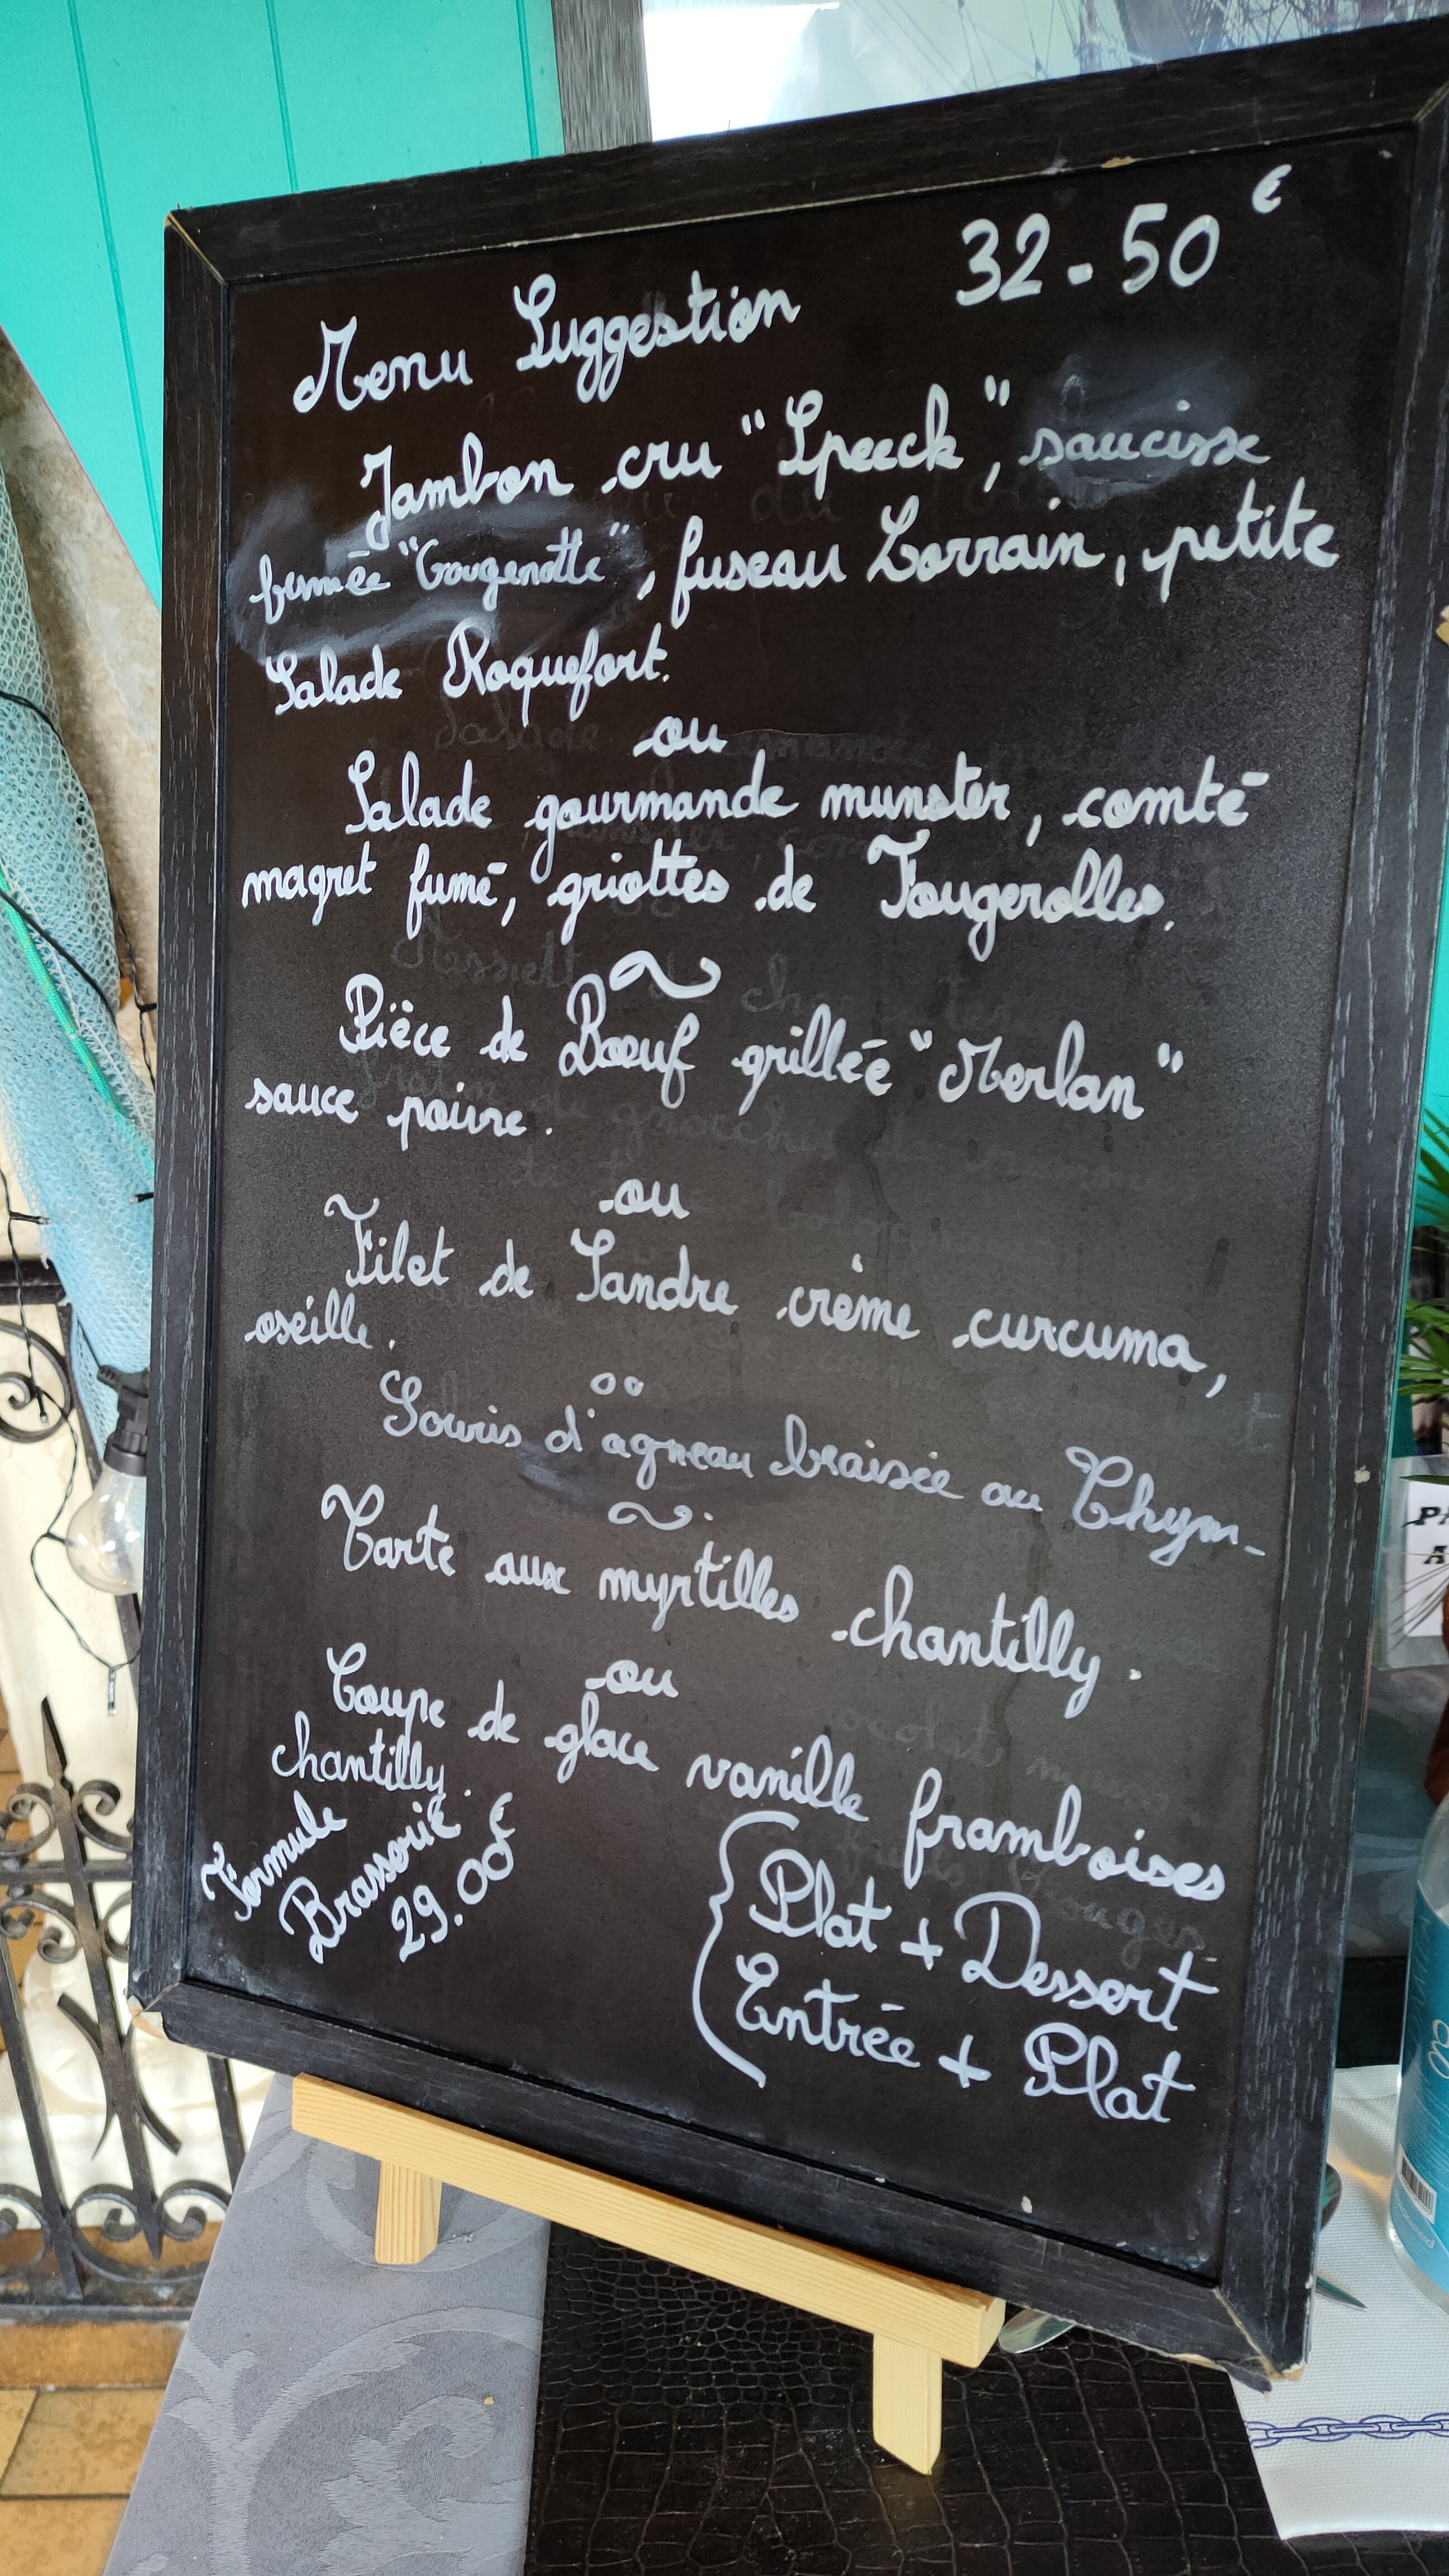 Menu Suggestion 32-50€
Jambon cru "Speeck", saucisse
fumée "Gougenotte", fuseau Lorrain, petite
Salade Roquefort.
ou
Salade gourmande munster, comté
magret fumé, griottes de Fougerolles.
~
Pièce de Boeuf grillée "Merlan"
sauce poivre.
ou
Filet de Sandre crème curcuma,
oseille.
où
Souris d'agneau braisée au Thym-
~.
Tarte aux myrtilles chantilly.
ou
Coupe de glace vanille framboises
chantilly.
Formule
Brasserie
29.00€
Plat + Dessert
Entrée + Plat